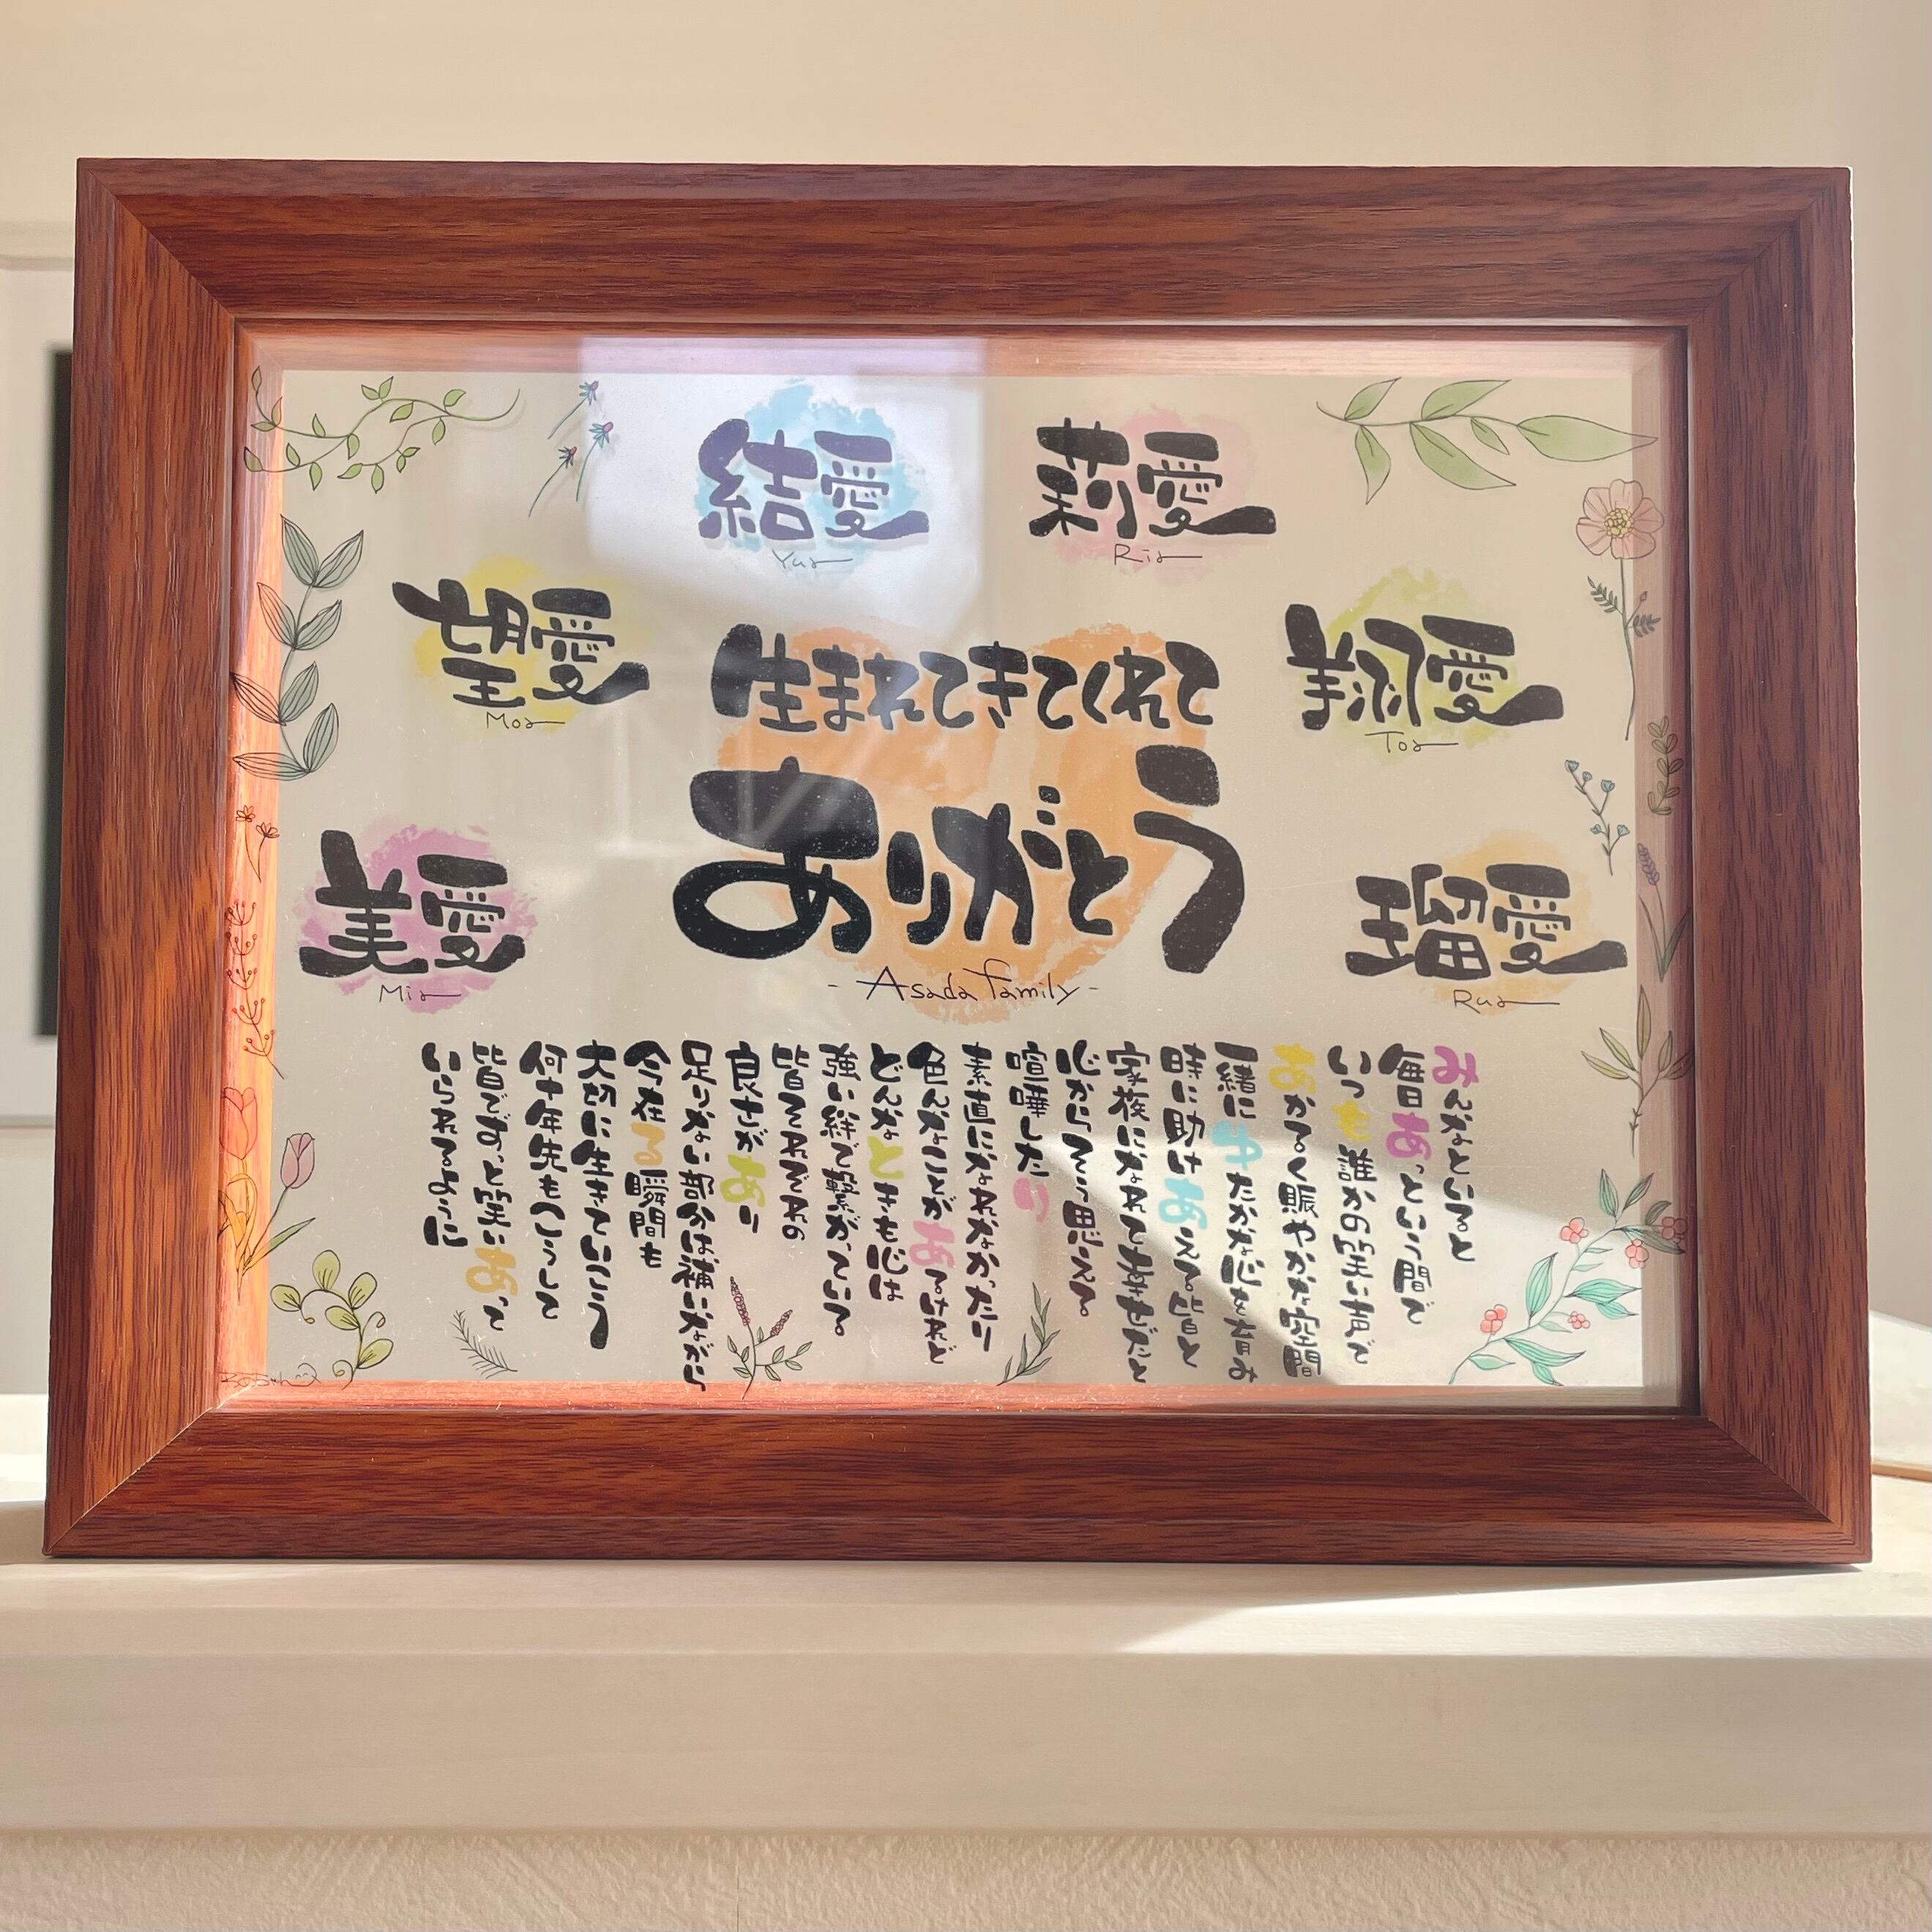 結愛
Yua
莉愛
Ria
望愛
Moa
翔愛
Toa
美愛
Mia
瑠愛
Rua
生まれてきてくれて
ありがとう
- Asada family -
みんなといると
毎日あっという間で
いつも誰かの笑い声で
あかるく賑やかな空間
一緒にゆたかな心を育み
時に助けあえる皆と
家族になれて幸せだと
心からそう思える
喧嘩したり
素直になれなかったり
色んなことがあるけれど
どんなときも心は
強い絆で繋がっている
皆それぞれの
良さがあり
足りない部分は補いながら
今在る瞬間も
大切に生きていこう
何十年先もこうして
皆でずっと笑いあって
いられるように